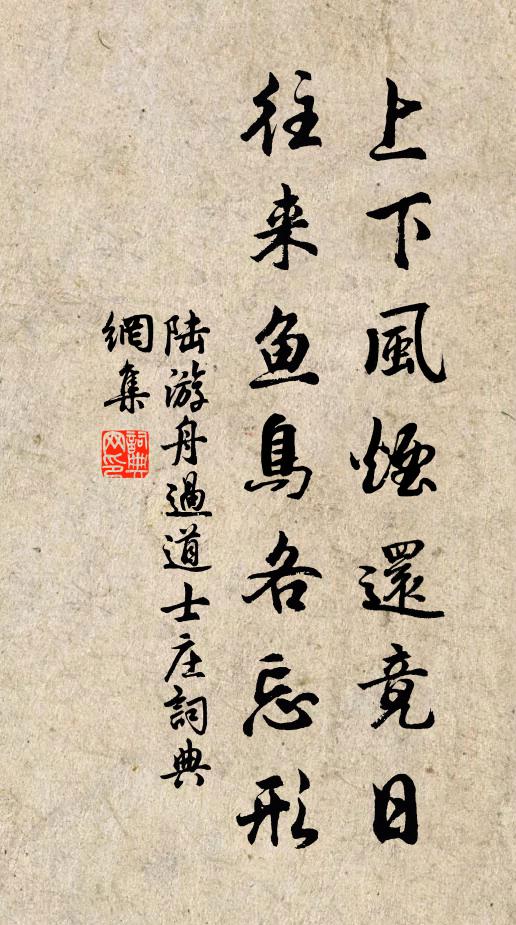 上下風煙還竟日
往来鱼鳥各忘形
陆游舟過道士庄詞典
網集
詞典網印